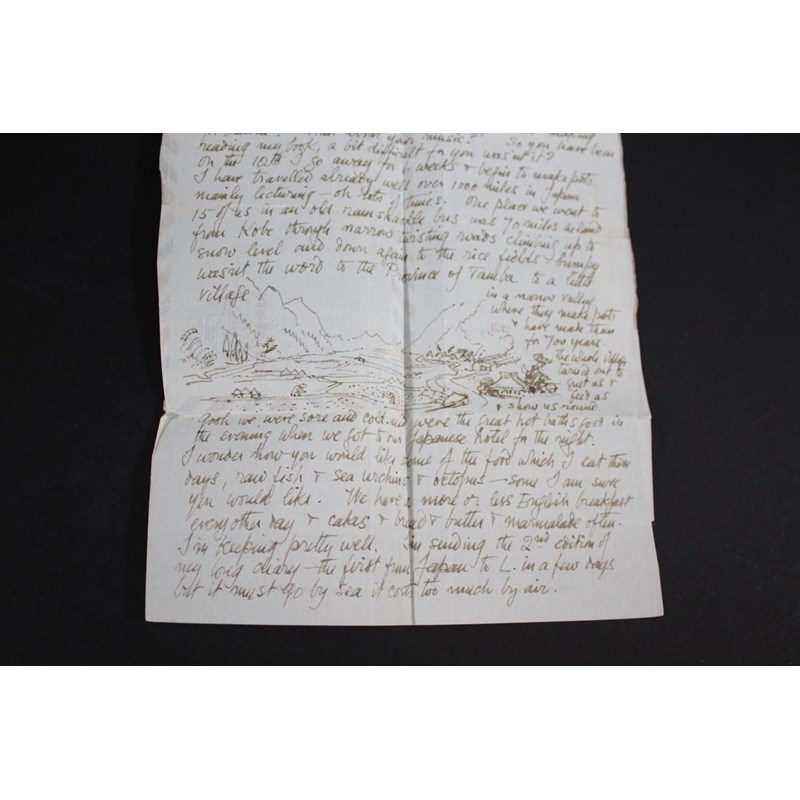 your music?
reading my book, a bit difficult for you wasn't it? So you have been
on the 10th I go away for 6 weeks & begin to make pots.
I have travelled already well over 1000 miles in Japan
mainly lecturing – oh lots of times. One place we went to
15 of us in an old ramshackle bus was 70 miles inland
from Kobe through narrow twisting roads climbing up to
snow level and down again to the rice fields – bumpy
wasn't the word to the Province of Tamba to a little
village
in a narrow valley
where they make pots
& have made them
for 700 years.
The whole village
turned out to
greet us &
feed us
& show us round
gosh we were sore and cold and were the great hot baths good in
the evening when we got to our Japanese hotel for the night.
I wonder how you would like some of the food which I eat these
days, raw fish & sea urchins & octopus – some I am sure
you would like. We have a more or less English breakfast
every other day & cakes & bread & butter & marmalade often.
I'm keeping pretty well. I'm sending the 2nd edition of
my long diary – the first from Japan to L. in a few days
but it must go by sea it costs too much by air.